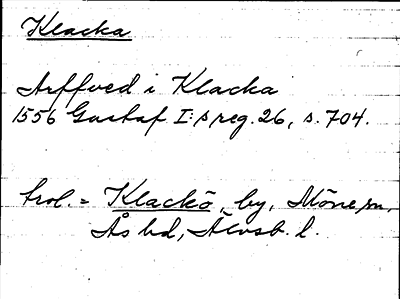 Klacka
Arffved i Klacka
1556 Gustaf I:s reg. 26, s. 704.
trol. = Klackö, by, Möne sn,
Ås hd, Älvsb. l.